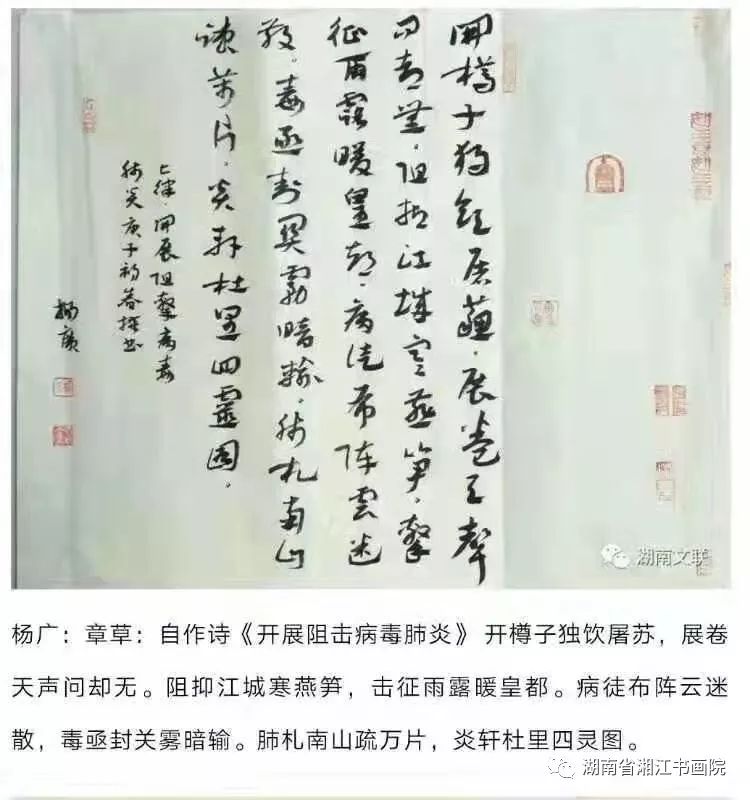 開樽子獨飲屠蘇。展卷天聲
问却無。阻抑江城寒燕笋。擊
征雨露暖皇都。病徒布陣雲迷
散。毒亟封關霧暗輸。肺札南山
疏萬片。炎軒杜里四靈圖。
七律·開展阻擊病毒
肺炎庚子初春撰書
楊廣
湖南文联
杨广：章草：自作诗《开展阻击病毒肺炎》 开樽子独饮屠苏，展卷
天声问却无。阻抑江城寒燕笋，击征雨露暖皇都。病徒布阵云迷
散，毒亟封关雾暗输。肺札南山疏万片，炎轩杜里四灵图。
湖南省湘江书画院